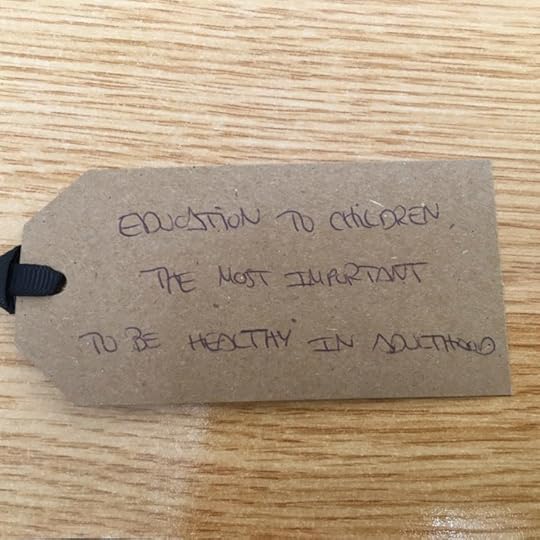 EDUCATION TO CHILDREN.
THE MOST IMPORTANT
TO BE HEALTHY IN ADULTHOOD